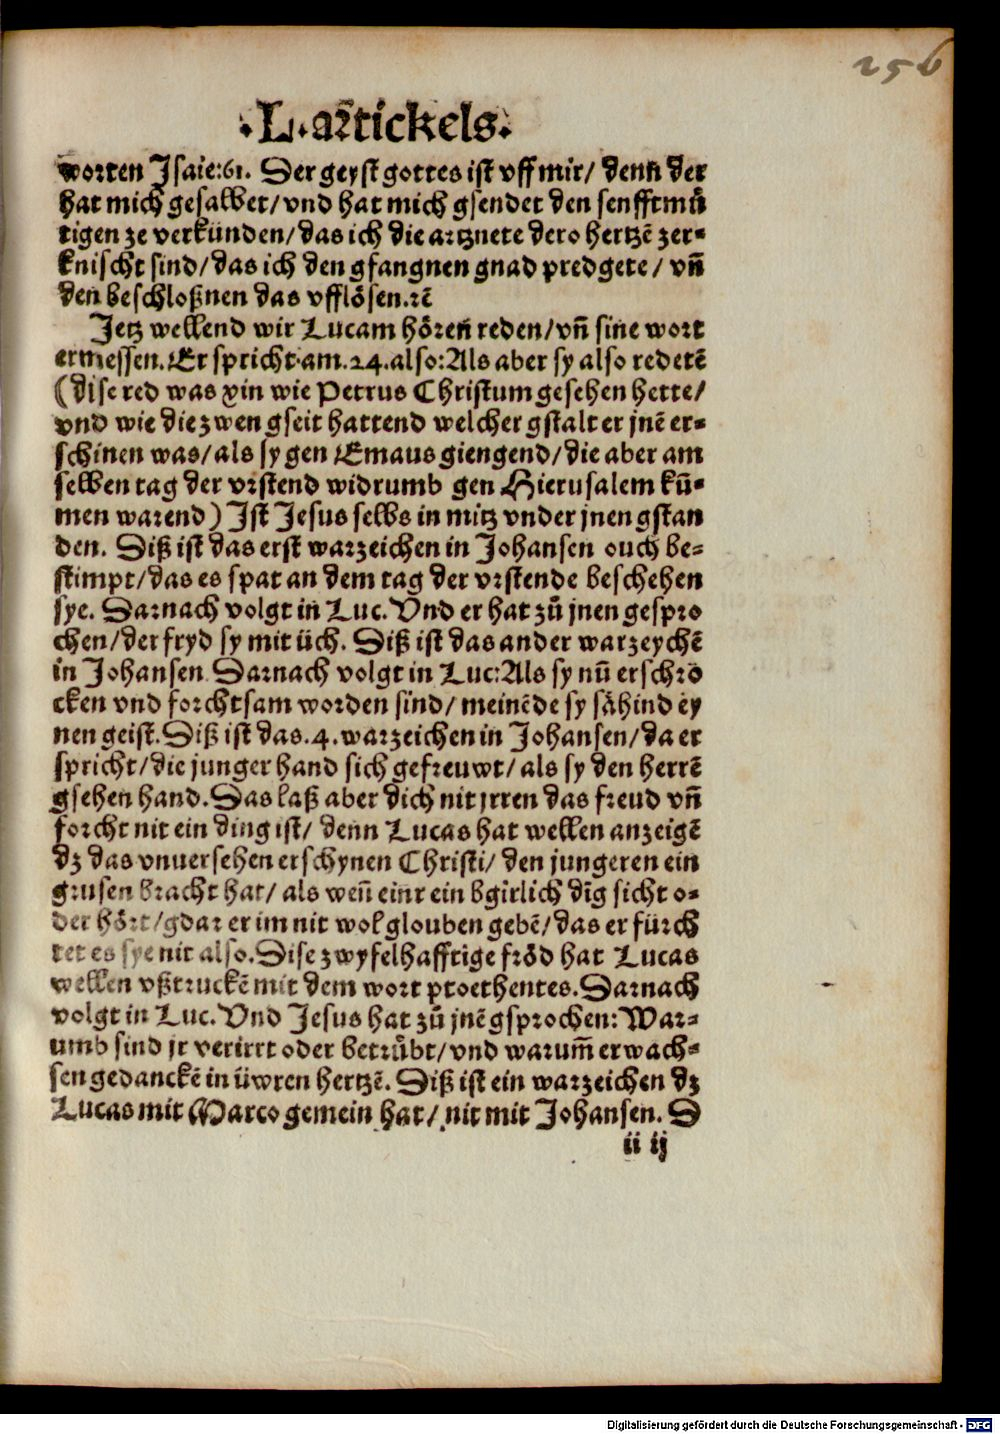 256
.L.artickels.
worten Jsaie:61. Der geyst gottes ist vff mir/ denn der
hat mich gesalbet/vnd hat mich gsendet den senfftmuͤ
tigen ze verkünden/das ich die artznete dero hertzē zer-
knischt sind/das ich den gfangnen gnad predgete/ vn̄
den beschloßnen das vfflösen.ꝛē
Jetz wellend wir Lucam hören reden/vn̄ sine wort
ermessen.Er spricht am.24.also:Als aber sy also redetē
(dise red was xin wie Petrus Christum gesehen hette/
vnd wie die zwen gseit hattend welcher gstalt er jnē er-
schinen was/als sy gen Emaus giengend/die aber am
selben tag der vrstend widrumb gen Hierusalem kū-
men warend) Jst Jesus selbs in mitz vnder jnen gstan
den. Diß ist das erst warzeichen in Johansen ouch be-
stimpt/das es spat an dem tag der vrstende beschehen
sye. Darnach volgt in Luc.Vnd er hat zuͦ jnen gespro
chen/der fryd sy mit üch. Diß ist das ander warzeychē
in Johansen.Darnach volgt in Luc:Als sy nū erschro
cken vnd forchtsam worden sind/meinēde sy sähind ey
nen geist.Diß ist das.4.warzeichen in Johansen/da er
spricht/die junger hand sich gefreuwt/als sy den herrē
gsehen hand.Das laß aber dich nit jrren das freud vn̄
forcht nit ein ding ist/ denn Lucas hat wellen anzeigē
dz das vnuersehen erschynen Christi/den jungeren ein
grusen bracht hat/als wen̄ einr ein bgirlich dīg sicht o-
der hört/gdar er im nit wol glouben gebē/das er fürch
tet es sye nit also.Dise zwyfelhafftige fröd hat Lucas
wellen vßtruckē mit dem wort ptoethentes.Darnach
volgt in Luc.Vnd Jesus hat zuͦ jnē gsprochen:War-
umb sind jr verirrt oder betruͤbt/vnd warum̄ erwach-
sen gedanckē in üwren hertzē. Diß ist ein warzeichen dz
Lucas mit Marco gemein hat/nit mit Johansen. D
ii ij
Digitalisierung gefördert durch die Deutsche Forschungsgemeinschaft - DFG